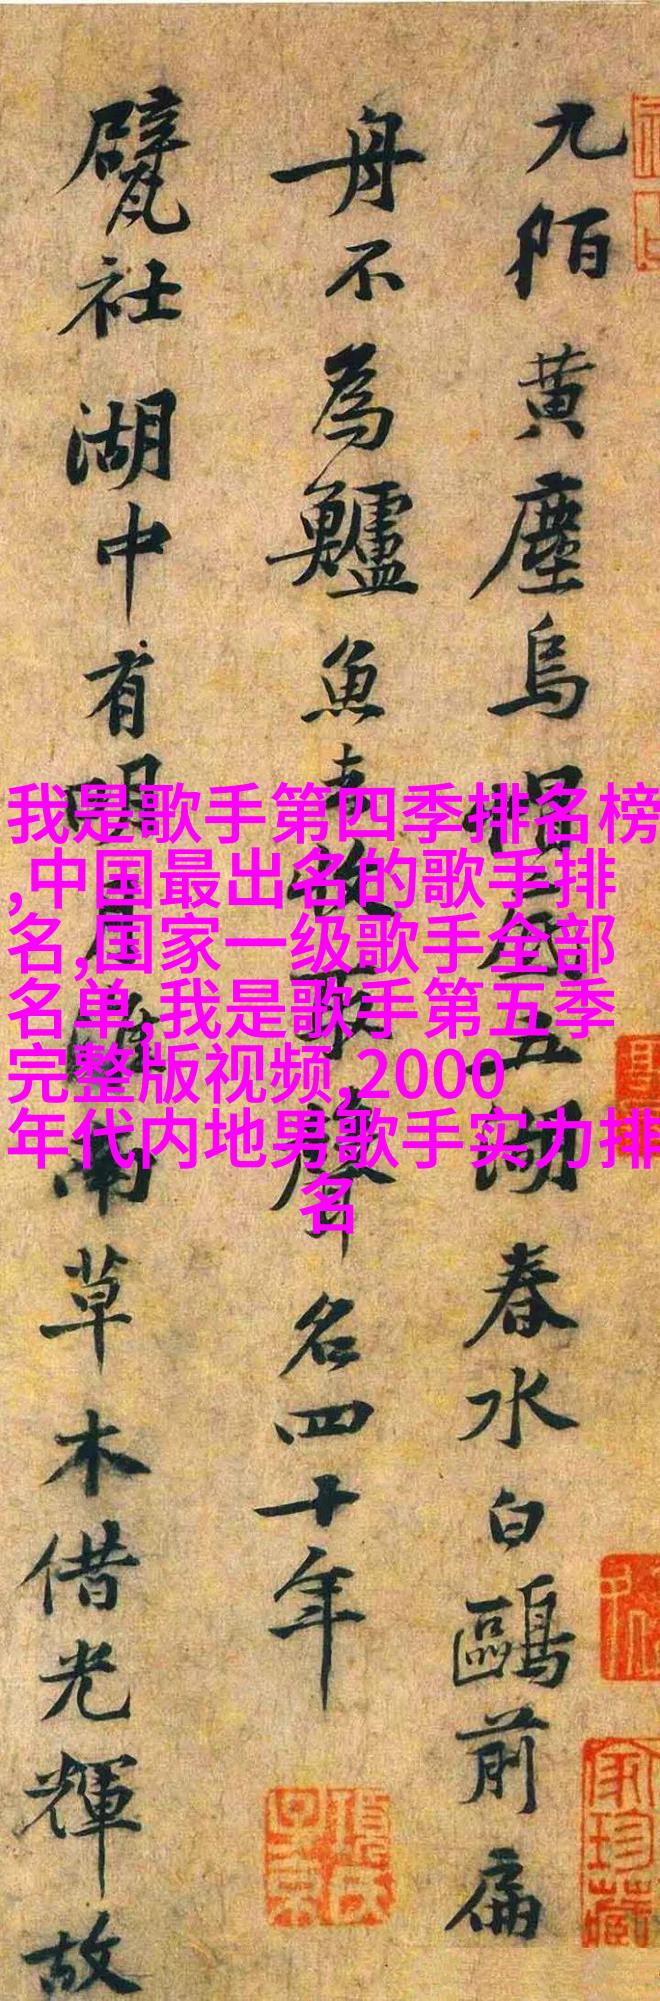 九陌黄塵烏帽底五湖春水白鷗前扁
舟不為鱸魚去收取聲名四十年
甓社湖中有明月淮南草木借光輝故
我是歌手第四季排名榜
,中国最出名的歌手排
名,国家一级歌手全部
名单,我是歌手第五季
完整版视频,2000
年代内地男歌手实力排
名
項氏子京
家珍藏